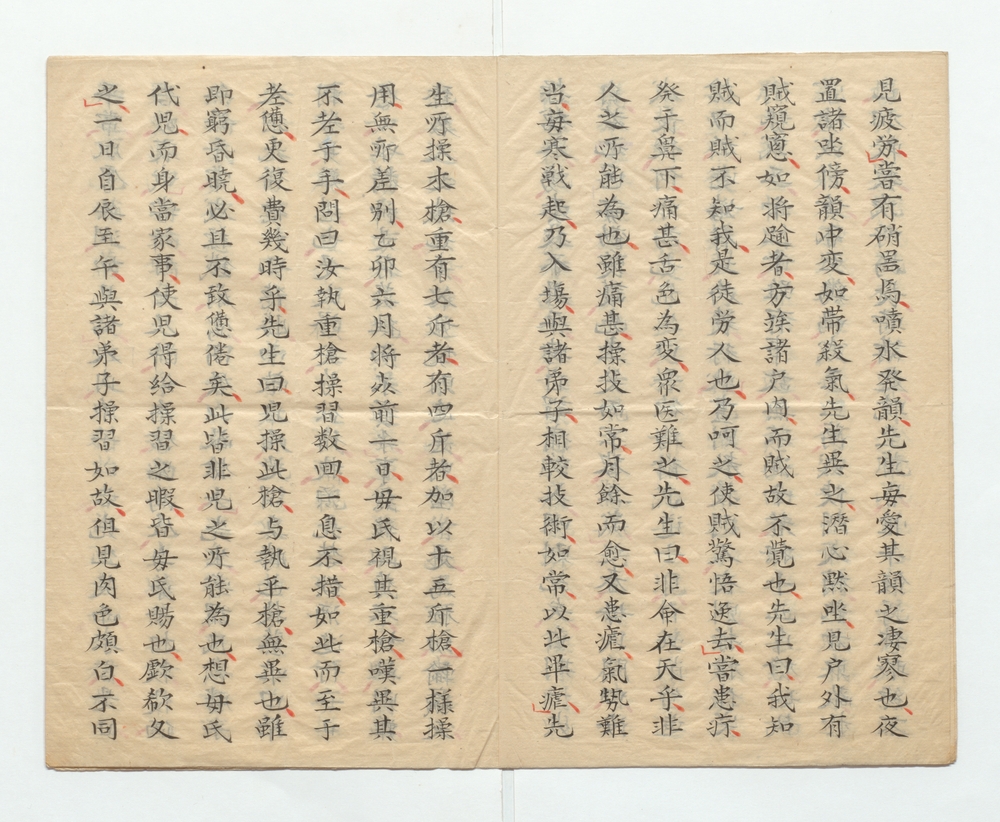 見疲労嘗有硝噐馬噴水発韻先生毎愛其韻之凄寥也夜
置諸坐傍韻中変如帯殺氣先生異之潛心黙坐見户外有
賊窺窓如将踰者方竢諸户内而賊故不覺也先生曰我知
賊而賊不知我是徒労人也乃呵之使賊驚悟逸去嘗患疔
発于鼻下痛甚舌色為変衆医難之先生曰非命在天乎非
人之所能為也雖痛甚操技如常月餘而愈又患瘧氣勢難
当毎寒戦起乃入塲與諸弟子相較技術如常以此畢瘧先
生所操木槍重有七斤者有四斤者加以十五斤槍一様操
用無所差別乙卯六月将歿前一日毋氏視其重槍嘆異其
不差于手問曰汝執重槍操習数回一息不措如此而至于
差憊更復費幾時乎先生曰児操此槍与執平槍無異也雖
即窮昏曉必且不致憊倦矣此皆非児之所能為也想毋氏
代児而身當家事使児得給操習之暇皆毋氏賜也歔欷久
之一日自辰至午與諸弟子操習如故但見肉色頗白不同